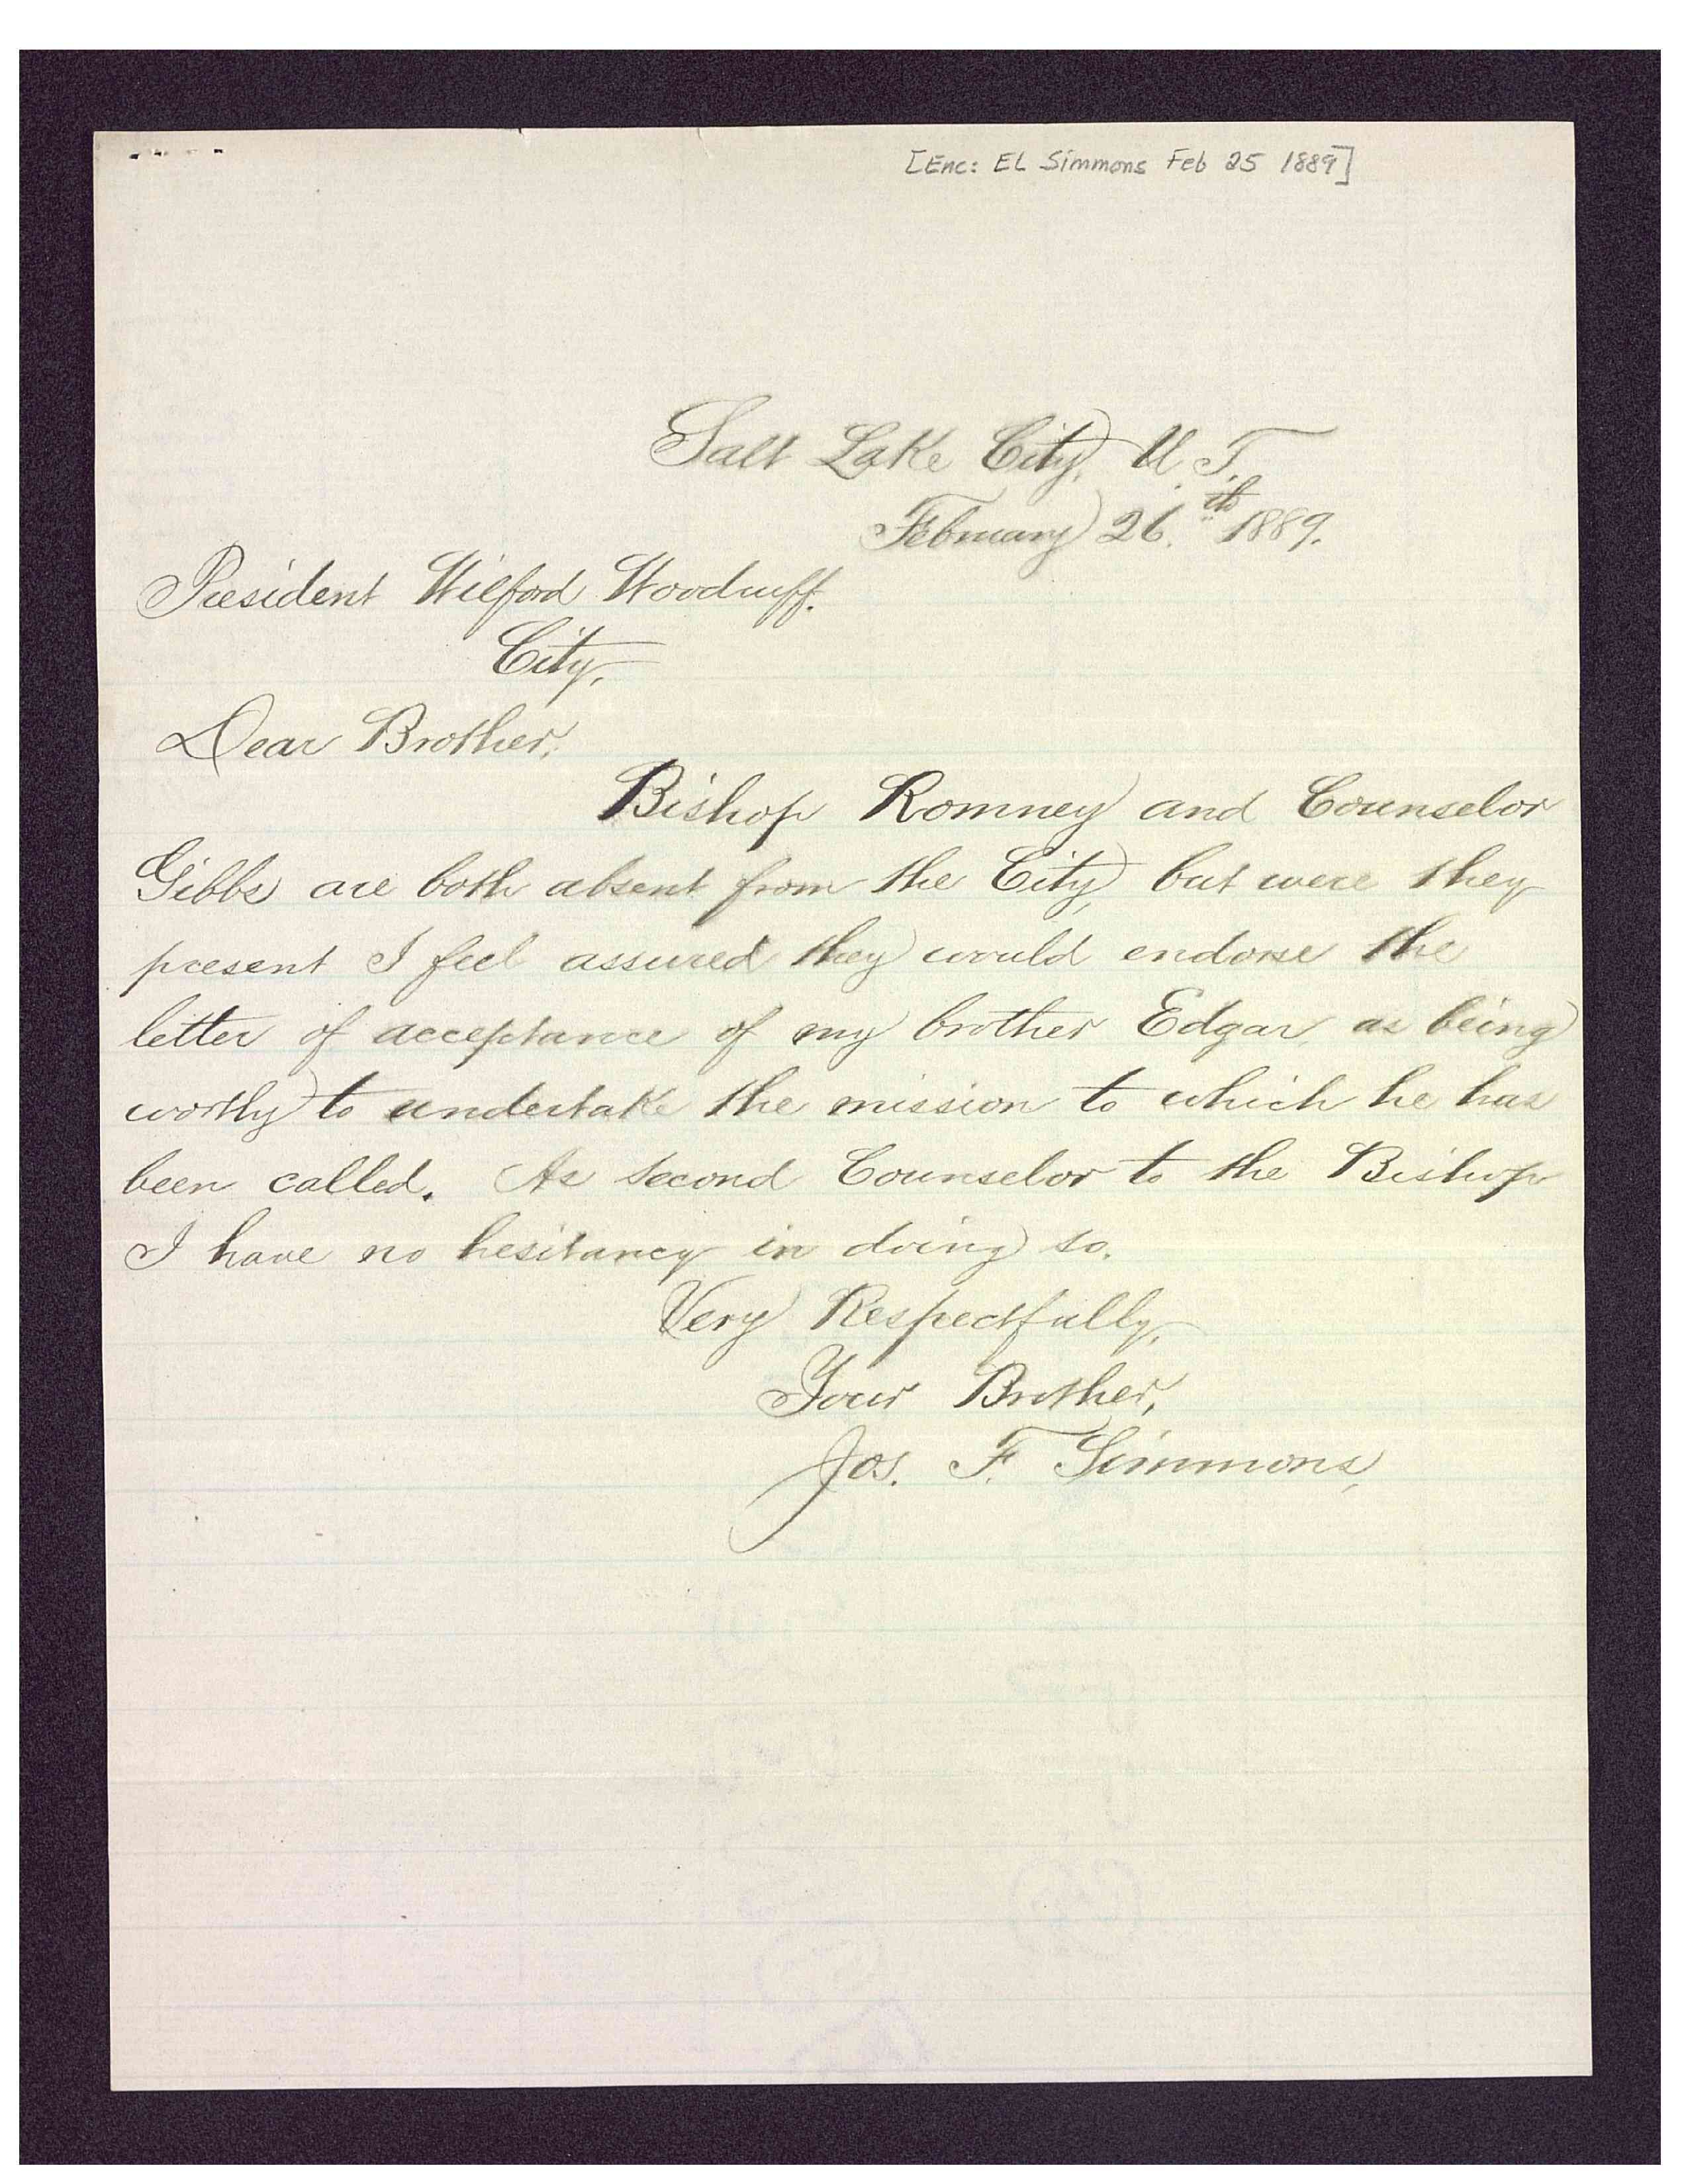 [Enc: EL Simmons Feb 25 1889]
Salt Lake City, U.T.
February 26.th 1889.
President Wilford Woodruff.
City,
Dear Brother,
Bishop Romney and Counselor
Gibbs are both absent from the City, but were they
present I feel assured they would endorse the
letter of acceptance of my brother Edgar, as being
worthy to undertake the mission to which he has
been called. As second Counselor to the Bishop
I have no hesitancy in doing so.
Very Respectfully,
Your Brother,
Jos. F. Simmons,